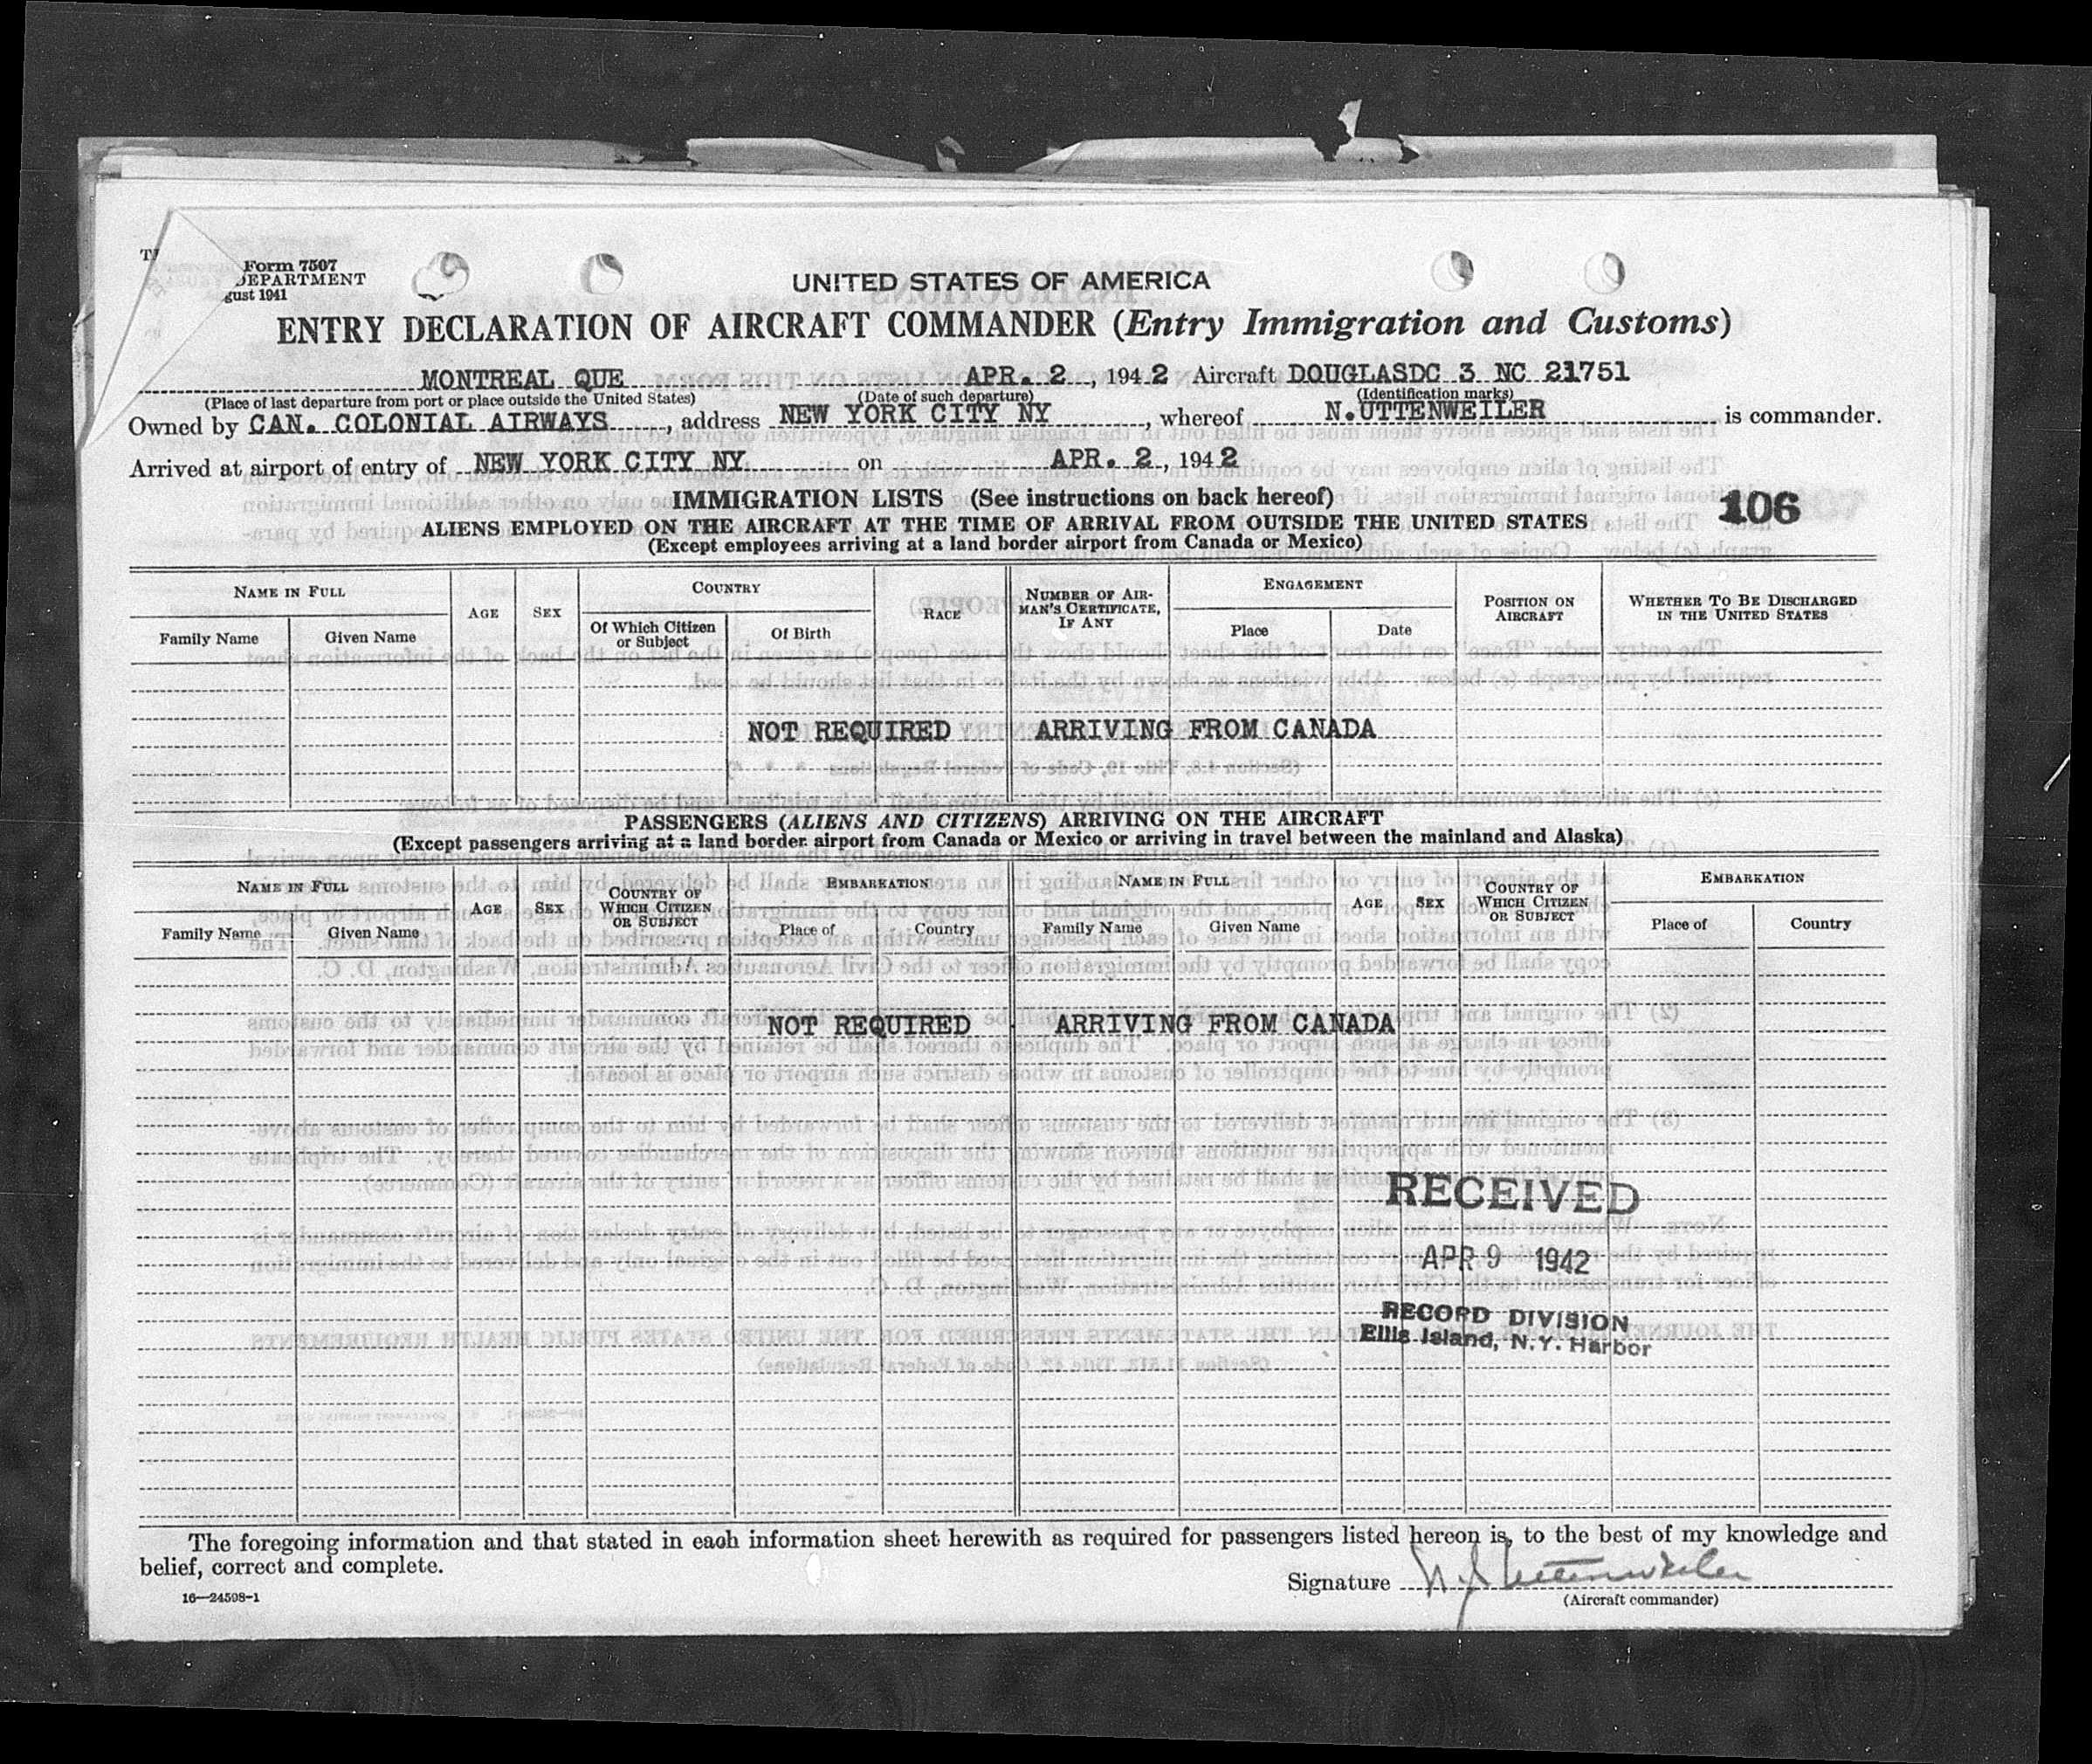 TR
Form 7507
DEPARTMENT
gust 1941
UNITED STATES OF AMERICA
ENTRY DECLARATION OF AIRCRAFT COMMANDER (Entry Immigration and Customs)
MONTREAL QUE APR. 2, 1942 Aircraft DOUGLASDC 3 NC 21751
(Place of last departure from port or place outside the United States) (Date of such departure) (Identification marks)
Owned by CAN. COLONIAL AIRWAYS, address NEW YORK CITY NY, whereof N.UTTENWEILER is commander.
Arrived at airport of entry of NEW YORK CITY NY on APR. 2, 1942
IMMIGRATION LISTS (See instructions on back hereof)
106
ALIENS EMPLOYED ON THE AIRCRAFT AT THE TIME OF ARRIVAL FROM OUTSIDE THE UNITED STATES
(Except employees arriving at a land border airport from Canada or Mexico)
NAME IN FULL AGE SEX COUNTRY RACE NUMBER OF AIRMAN'S CERTIFICATE, IF ANY ENGAGEMENT POSITION ON AIRCRAFT WHETHER TO BE DISCHARGED IN THE UNITED STATES
Family Name Given Name Of Which Citizen or Subject Of Birth Place Date
NOT REQUIRED ARRIVING FROM CANADA
PASSENGERS (ALIENS AND CITIZENS) ARRIVING ON THE AIRCRAFT
(Except passengers arriving at a land border airport from Canada or Mexico or arriving in travel between the mainland and Alaska)
NAME IN FULL AGE SEX COUNTRY OF WHICH CITIZEN OR SUBJECT EMBARKATION NAME IN FULL AGE SEX COUNTRY OF WHICH CITIZEN OR SUBJECT EMBARKATION
Family Name Given Name Place of Country Family Name Given Name Place of Country
NOT REQUIRED ARRIVING FROM CANADA
RECEIVED
APR 9 1942
RECORD DIVISION
Ellis Island, N.Y. Harbor
The foregoing information and that stated in each information sheet herewith as required for passengers listed hereon is, to the best of my knowledge and
belief, correct and complete.
Signature N J Uttenweiler
16—24598-1 (Aircraft commander)